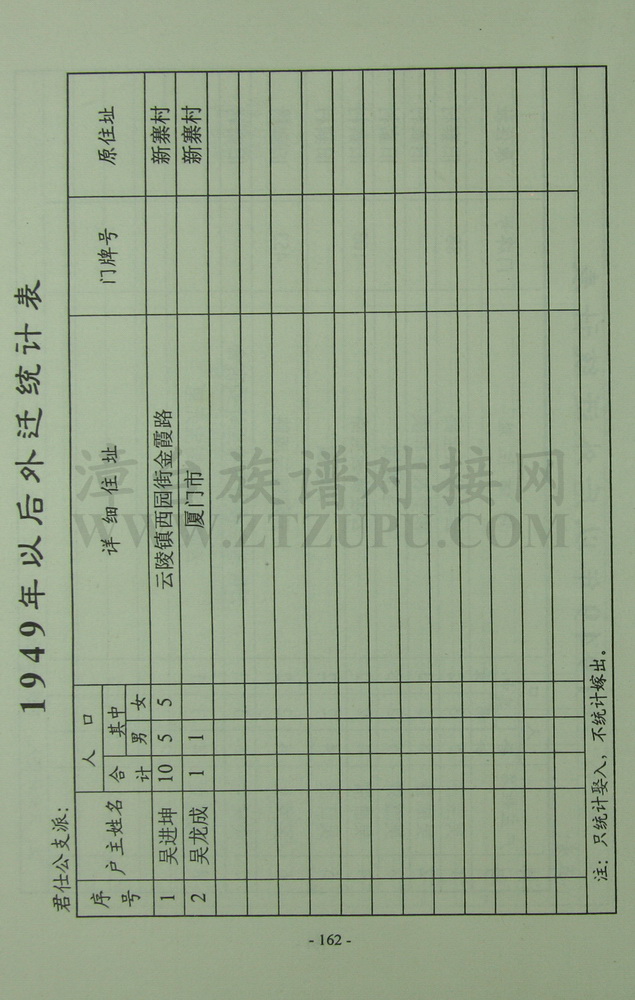 1949年以后外迁统计表
君仕公支派：
序号 户主姓名 人口 详细住址 门牌号 原住址
合计 其中
男 女
1 吴进坤 10 5 5 云陵镇西园街金霞路 新寨村
2 吴龙成 1 1 厦门市 新寨村
注：只统计娶入，不统计嫁出。
- 162 -
族谱对接网
WWW.ZTZUPU.COM